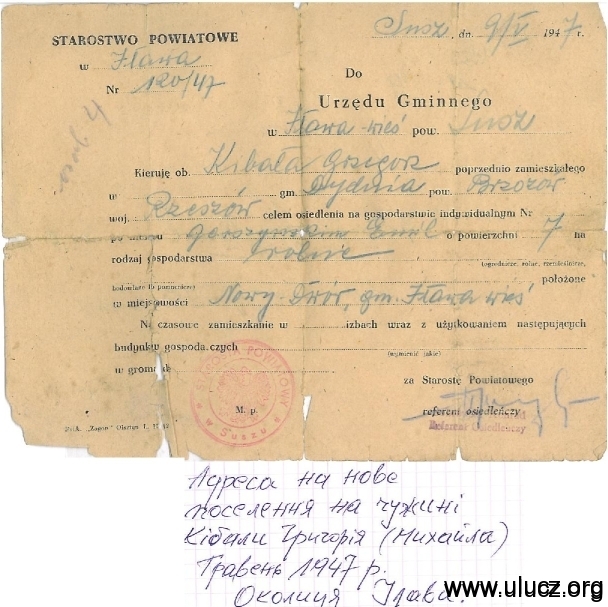 Susz, dn. 9/V 1947 r.
STAROSTWO POWIATOWE
w Iława
Nr 120/47
Do
Urzędu Gminnego
w Iława-wieś pow. Susz
Kieruję ob. Kibała Grzegorz poprzednio zamieszkałego
w gm. Dydnia pow. Brzozów
woj. Rzeszów celem osiedlenia na gospodarstwie indywidualnym Nr
po Emil o powierzchni 7 na
rodzaj gospodarstwa rolne
(ogrodnicze, rolne, rzemieślnicze,
położone
w miejscowości Nowy Dwór, gm. Iława wieś
Na czasowe zamieszkanie w izbach wraz z użytkowaniem następujących
budynków gospodarczych
(wymienić jakie)
w gromadzie
za Starostę Powiatowego
M. p.
referent osiedleńczy
Referent Osiedleńczy
"Zagon" Olsztyn
Адреса на нове
поселення на чужині
Кібали Григорія (Михайла)
Травень 1947 р.
Околиця Ілава.
www.ulucz.org